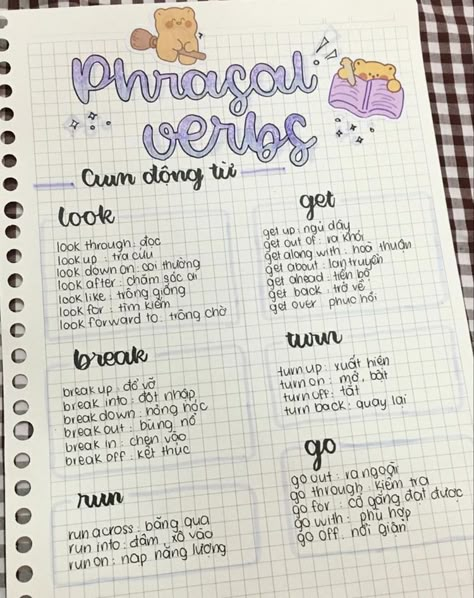 Phrasal
verbs
Cụm động từ
look
look through : đọc
look up : tra cứu
look down on : coi thường
look after : chăm sóc ai
look like : trông giống
look for : tìm kiếm
look forward to : trông chờ
get
get up : ngủ dậy
get out of : ra khỏi
get along with : hoà thuận
get about : lan truyền
get ahead : tiến bộ
get back : trở về
get over : phục hồi
break
break up : đổ vỡ
break into : đột nhập
break down : hỏng hóc
break out : bùng nổ
break in : chen vào
break off : kết thúc
turn
turn up : xuất hiện
turn on : mở, bật
turn off : tắt
turn back : quay lại
run
run across : băng qua
run into : đâm, xô vào
run on : nạp năng lượng
go
go out : ra ngoài
go through : kiểm tra
go for : cố gắng đạt được
go with : phù hợp
go off : nổi giận